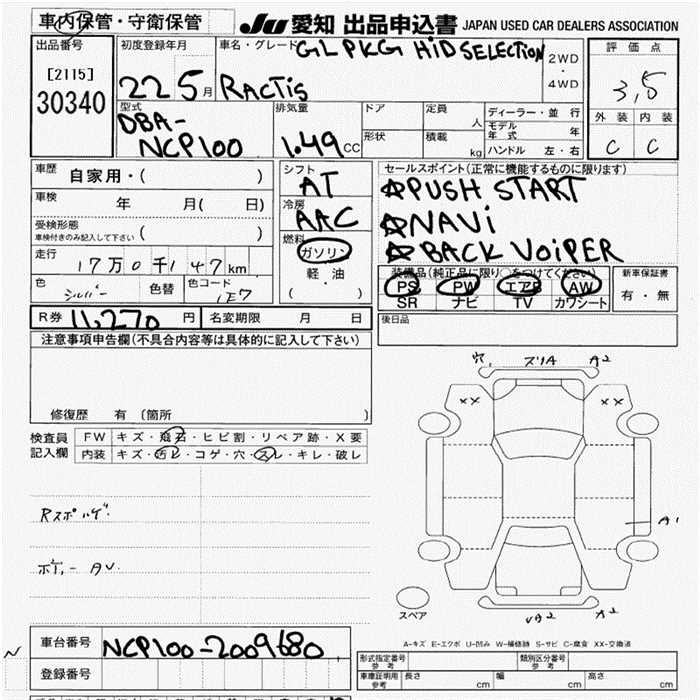 車内保管・守衛保管
JU 愛知 出品申込書 JAPAN USED CAR DEALERS ASSOCIATION
出品番号
[2115]
30340
初度登録年月
22 5月
車名・グレード
GL PKG HID SELECTION
RACTIS
2WD
・
4WD
評価点
3.5
外装 内装
C C
型式
DBA-
NCP100
排気量
1.49CC
ドア
定員 人
形状
積載 kg
ディーラー・並行
モデル年式 年
ハンドル 左・右
車歴
自家用・( )
車検
年 月( 日)
受検形態
車検付きのみ記入して下さい ( )
走行
17万0千147km
色
シルバー
色替
色コード
1E7
シフト
AT
冷房
AAC
燃料
ガソリン
軽・油
( ・ )
セールスポイント(正常に機能するものに限ります)
☆PUSH START
☆NAVi
☆BACK VOiPER
装備品(純正品に限り○をつけてください)
PS PW エアB AW
SR ナビ TV カワシート
新車保証書
有・無
R券 11,270 円
名変期限 月 日
後日品
注意事項申告欄(不具合内容等は具体的に記入して下さい)
修復歴 有(箇所 )
検査員
記入欄
FW キズ・飛石・ヒビ割・リペア跡・X要
内装 キズ・汚レ・コゲ・穴・スレ・キレ・破レ
穴 スリA A2
XX XX
A1
Rスポ ハゲ
ボデー AU
スペア
A2
A-キズ E-エクボ U-凹み W-補修跡 S-サビ C-腐食 XX-交換済
N
車台番号
NCP100-2009680
登録番号
形式指定番号
参考
類別区分番号
参考
車庫証明用
参考
長さ cm
幅 cm
高さ cm